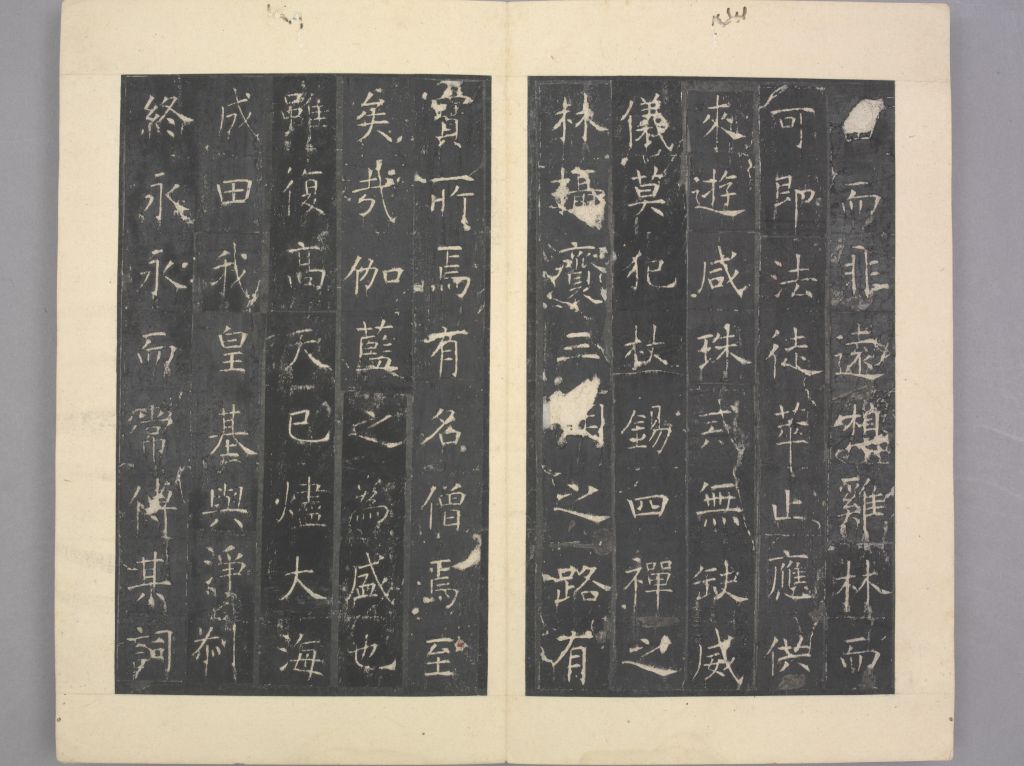 而非遠想雞林而
可即法徒萃止應供
來遊咸珠戒無缺威
儀莫犯杖錫四禪之
林攝齋三之路有
寶所焉有名僧焉至
矣哉伽藍之為盛也
雖復高天已燼大海
成田我皇基與淨剎
終永永而常傳其詞